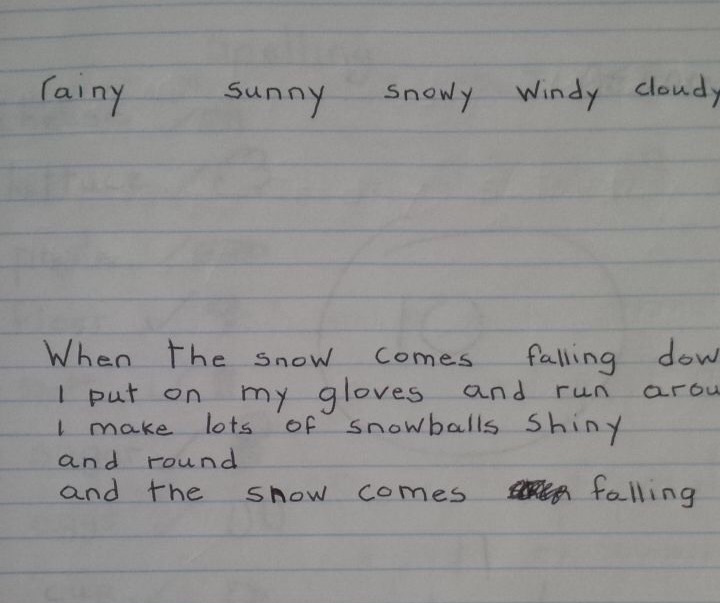 rainy sunny snowy windy cloudy
When the snow comes falling dow
I put on my gloves and run arou
I make lots of snowballs shiny
and round
and the snow comes falling